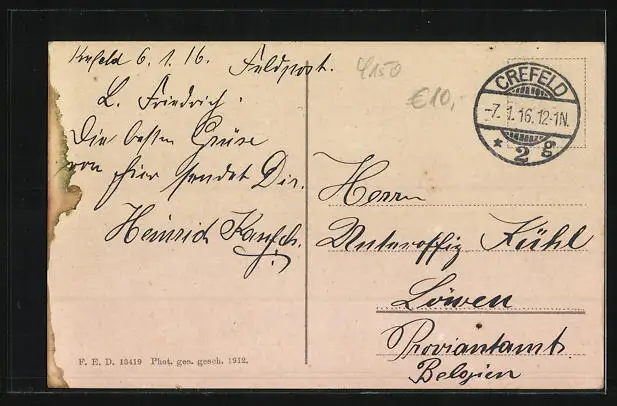 Krefeld 6.1.16.
Feldpost.
L. Friedrich.
Die besten Grüße
von hier sendet Dir.
Heinrich
4150
€10,-
CREFELD
-7.1.16.12-1N.
* 2 g
Herrn
Unteroffiz Kühl
Löwen
Proviantamt
Belgien
F. E. D. 13419 Phot. ges. gesch. 1912.